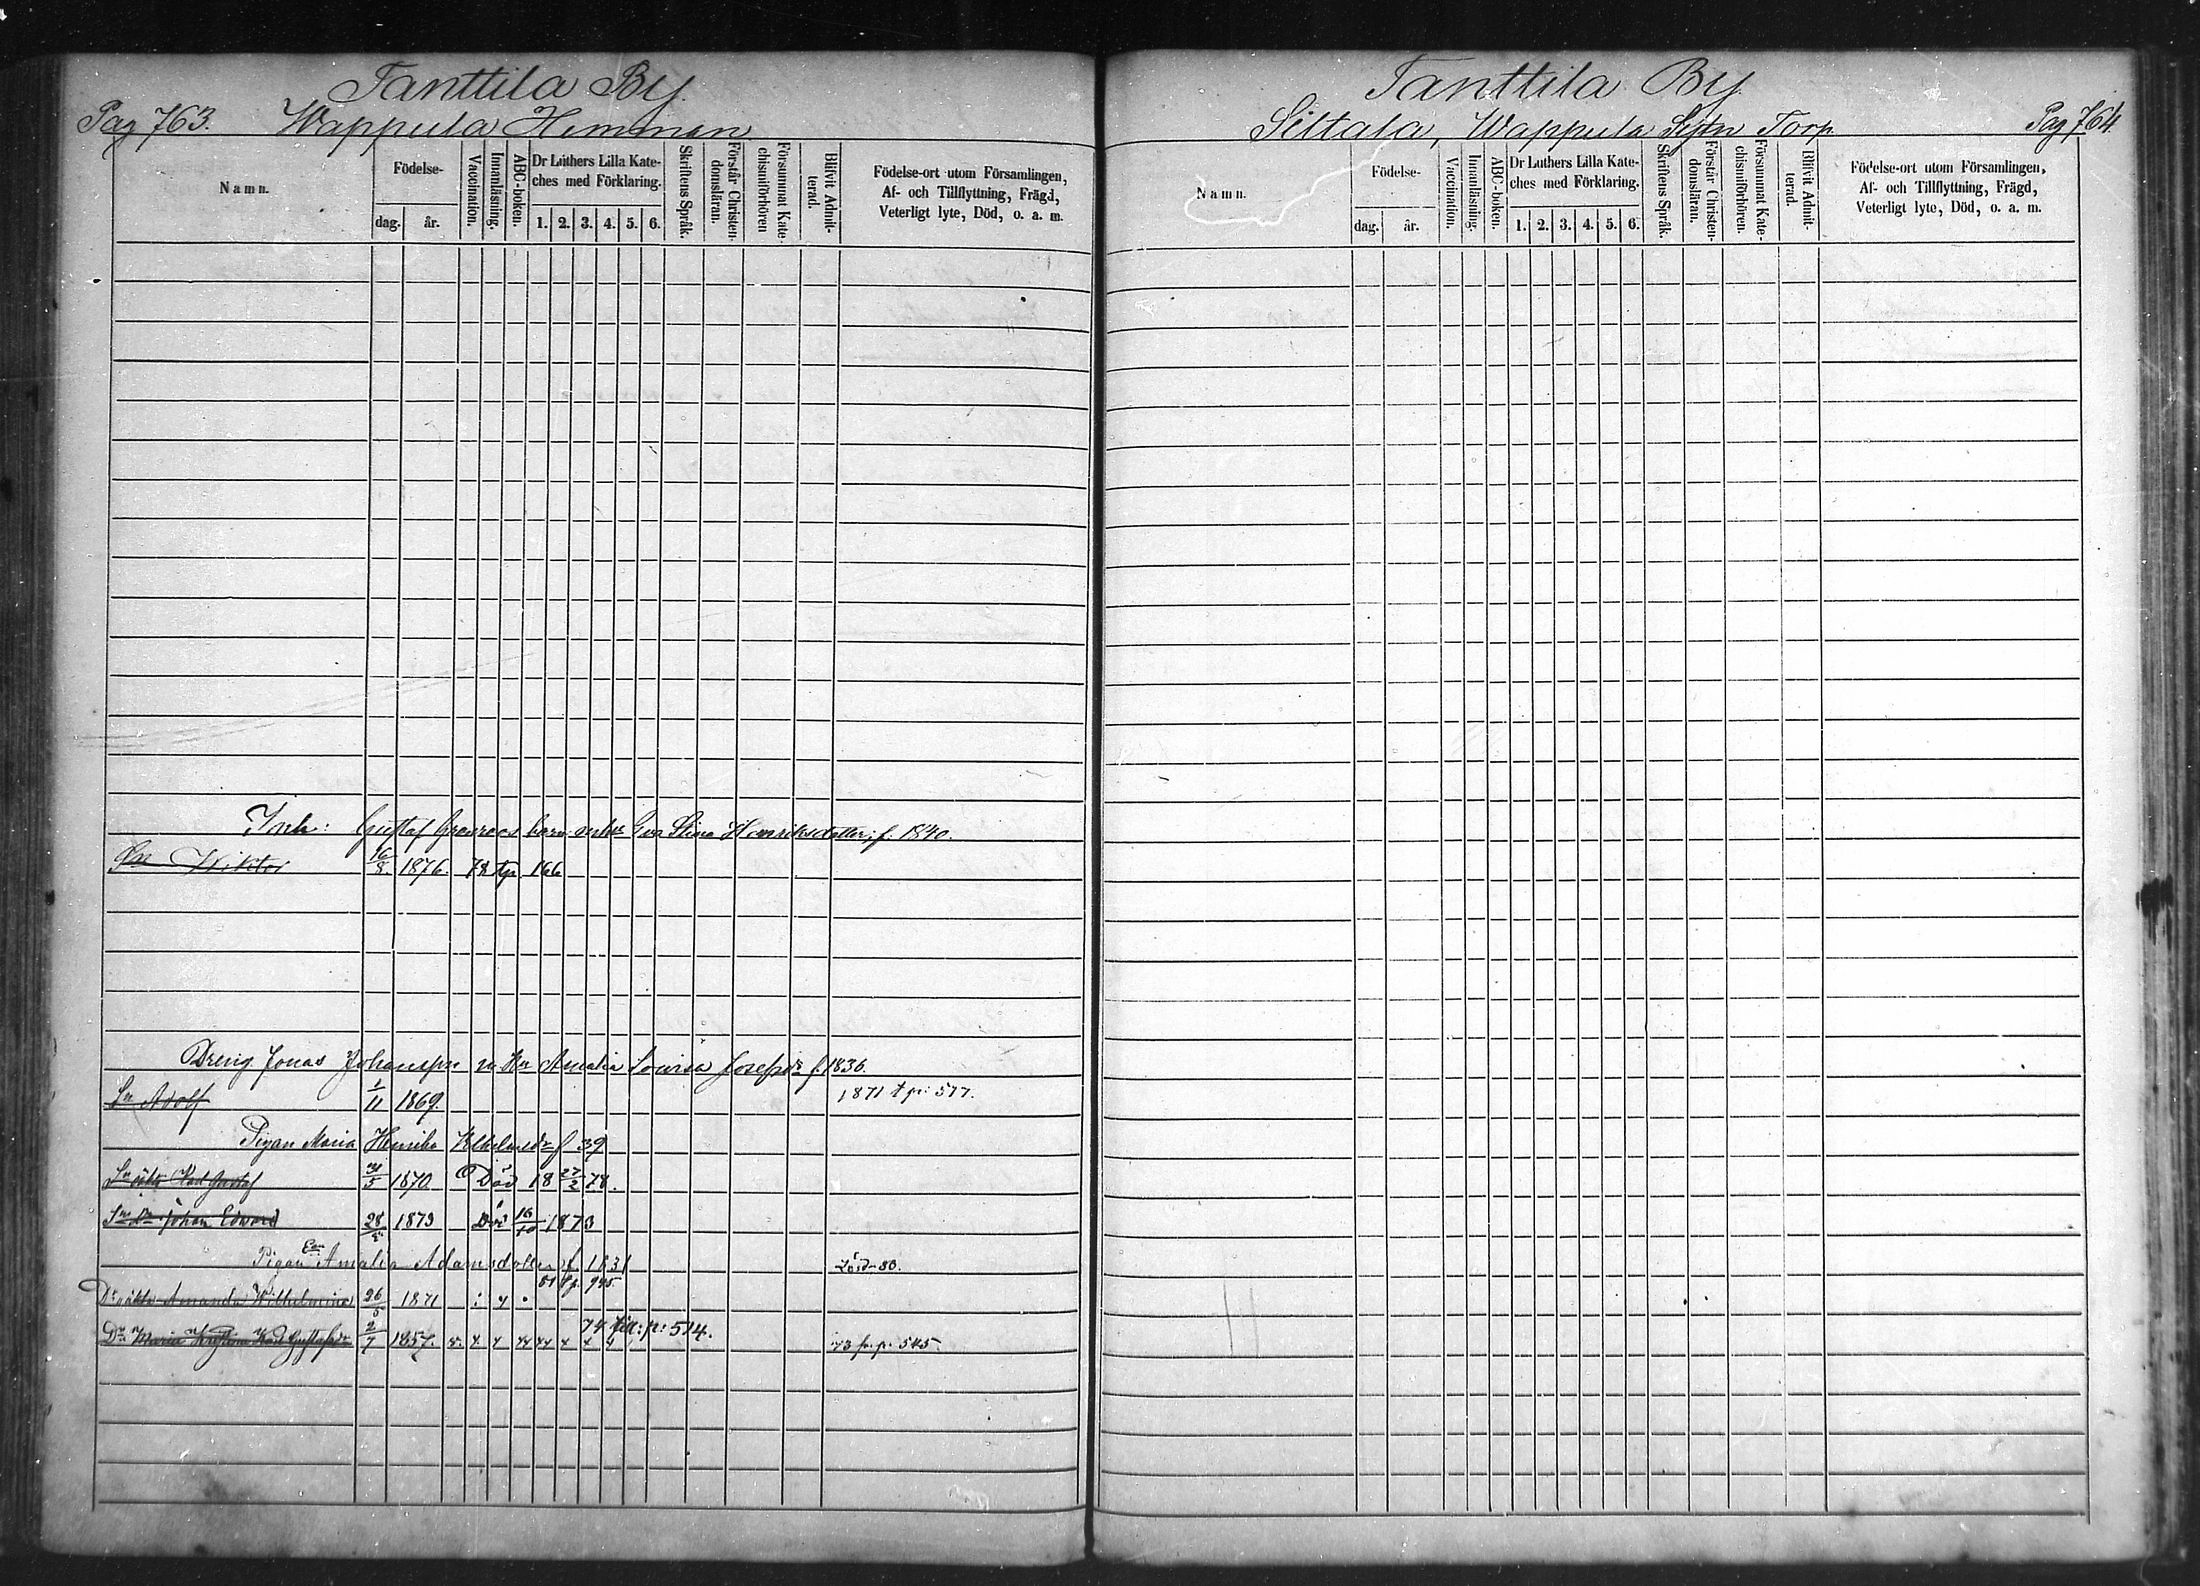 Tanttila By.
Pag 763. Wappula Hemman
Namn.
Födelse-
dag. år.
Vaccination.
Innanläsning.
ABC-boken.
Dr Luthers Lilla Kate-
ches med Förklaring.
1. 2. 3. 4. 5. 6.
Skriftens Språk.
Förstår Christen-
domsläran.
Försummat Kate-
chismiförhören
Blifvit Admit-
terad.
Födelse-ort utom Församlingen,
Af- och Tillflyttning, Frägd,
Veterligt lyte, Död, o. a. m.
Inh: Gustaf Granroos barn m. Stina Henriksdotter, f. 1840.
Sn Wiktor 16/8 1876. 78 tp 166
Dreng Jonas Johansson m. Hu Amalia Lovisa Josephdr f. 1836.
Sn Adolf 1/11 1869. 1871 t p: 577.
Pigan Maria Henrika f 39
Sn oäkta Karl Gustaf 31/5 1870. Död 18 27/2 78.
Sn Johan Edvard 28/5 1873 Död 16/10 1873
Pigan Eva Amalia Adamsdotter f. 1831 Död 80.
81 t p. 945.
Dr oäkta Amanda Wilhelmina 26/5 1871
74 till: p: 514.
Dr Maria Kristina Karl Gustafsdr 2/7 1857. 73 fr. p. 545.
Tanttila By
Siltala, Wappula Torp Pag 764
Namn.
Födelse-
dag. år.
Vaccination.
Innanläsning.
ABC-boken.
Dr Luthers Lilla Kate-
ches med Förklaring.
1. 2. 3. 4. 5. 6.
Skriftens Språk.
Förstår Christen-
domsläran.
Försummat Kate-
chismiförhören.
Blifvit Admit-
terad.
Födelse-ort utom Församlingen,
Af- och Tillflyttning, Frägd,
Veterligt lyte, Död, o. a. m.